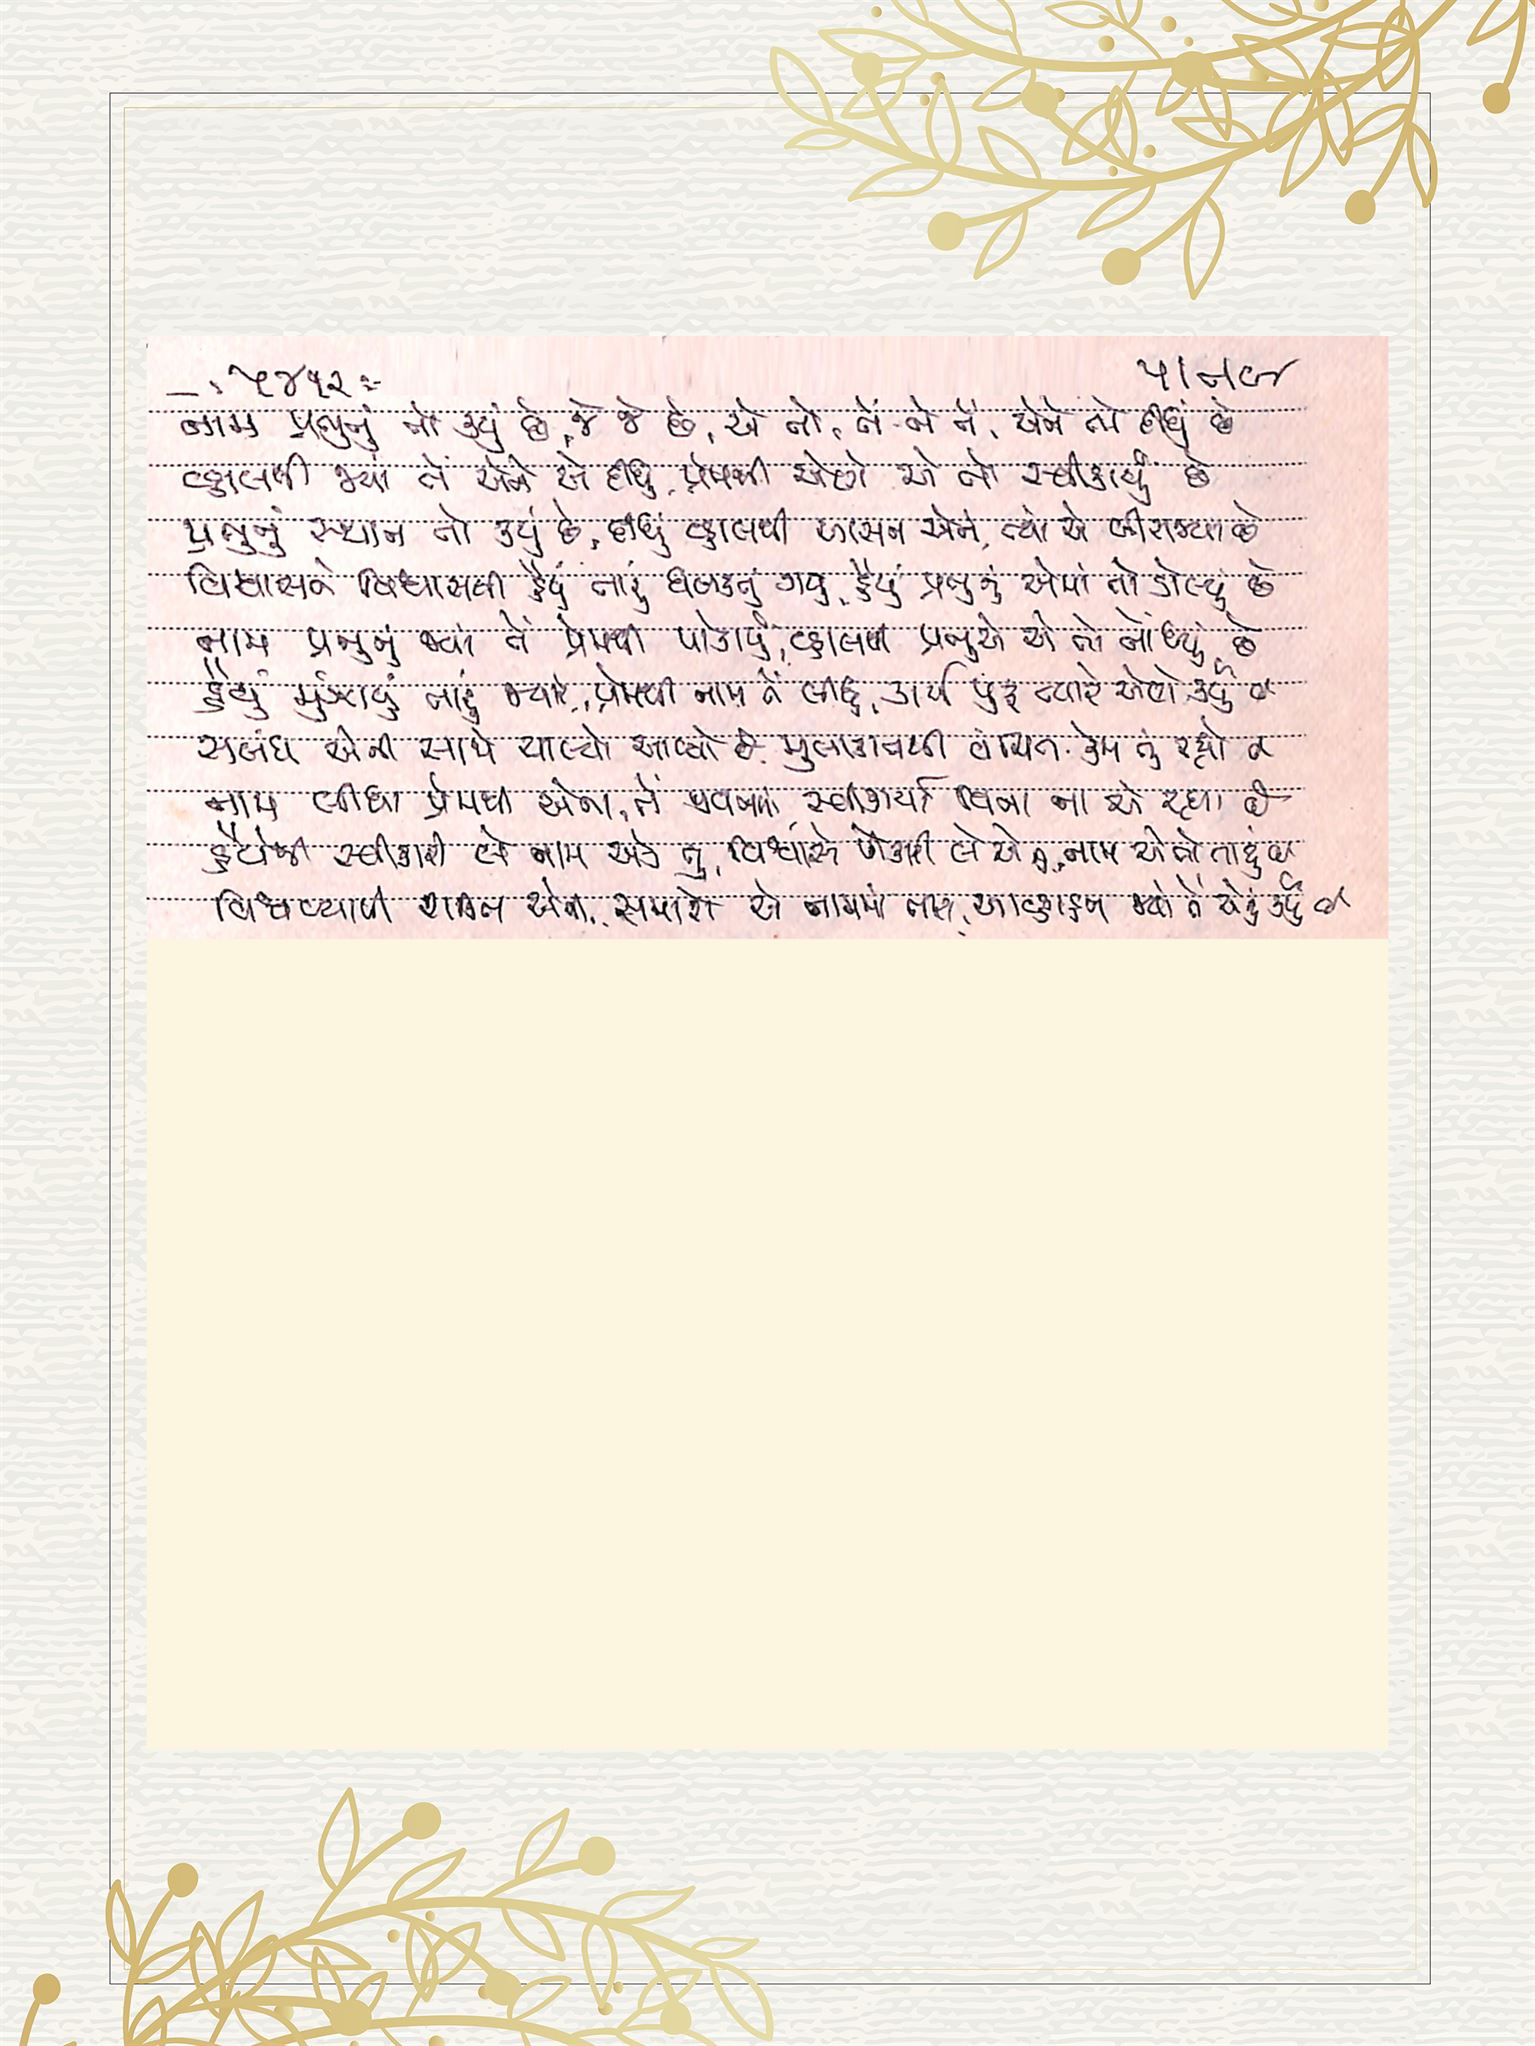 ૫૪૧૨
નામ પ્રભુનું તો કયું છે, જે જે છે, એ તો, તેં ને તેં, એને તો દીધું છે
વ્હાલથી જ્યાં તેં એને એ દીધું, પ્રેમથી એણે એ તો સ્વીકાર્યું છે
પ્રભુનું સ્થાન તો કયું છે, દીધું વ્હાલથી આસન એને, ત્યાં એ બીરાજ્યા છે
વિશ્વાસને વિશ્વાસથી હૈયું તારું ધબકતું ગયું, હૈયું પ્રભુનું એમાં તો ડોલ્યું છે
નામ પ્રભુનું જ્યાં તેં પ્રેમથી પોકાર્યું, વ્હાલથી પ્રભુએ એ તો નોંધ્યું છે
હૈયું મુંઝાયું તારું જ્યારે, પ્રેમથી નામ તેં લીધું, કાર્ય પુરૂં ત્યારે એણે કર્યું છે
સબંધ એની સાથે ચાલ્યો આવ્યો છે મુલાકાતથી વંચિત કેમ તું રહ્યો છે
નામ લીધા પ્રેમથી એના, તેં સ્વીકાર્યા વિના ના એ રહ્યા છે
હૈયેથી સ્વીકારી લે નામ એક તું, વિશ્વાસે પોકારી લે એ તું, નામ એ તો તારું છે
વિશ્વવ્યાપી એના, સમાશે એ નામમાં તારા, જ્યાં તેં એનું કર્યું છે